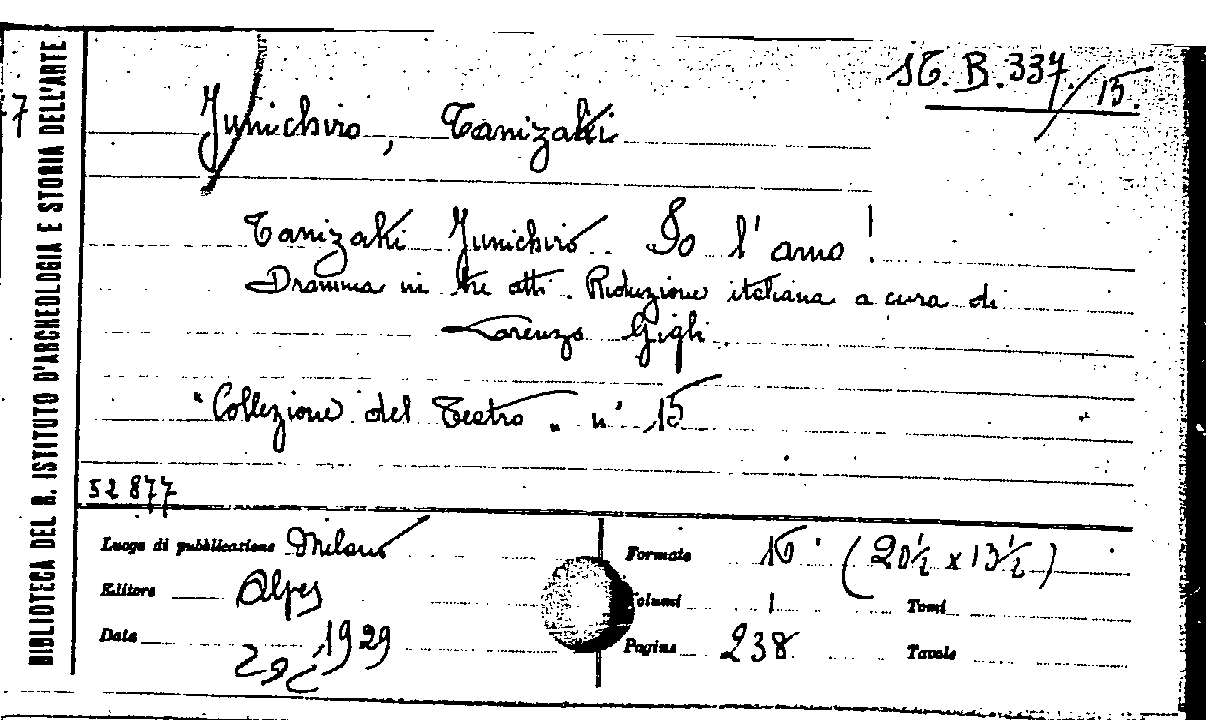 BIBLIOTECA DEL R. ISTITUTO D'ARCHEOLOGIA E STORIA DELL'ARTE
ST. B. 337/15.
Junichiro, Tanizaki
Tanizaki Junichiro. Io l'amo!
Dramma in tre atti. Riduzione italiana a cura di
Lorenzo Gigli
"Collezione del Teatro" n° 15
52877
Luogo di pubblicazione Milano
Editore Alpes
Data 1929
Formato 16° (20½ x 13½)
Volumi 1 Tomi
Pagine 238 Tavole